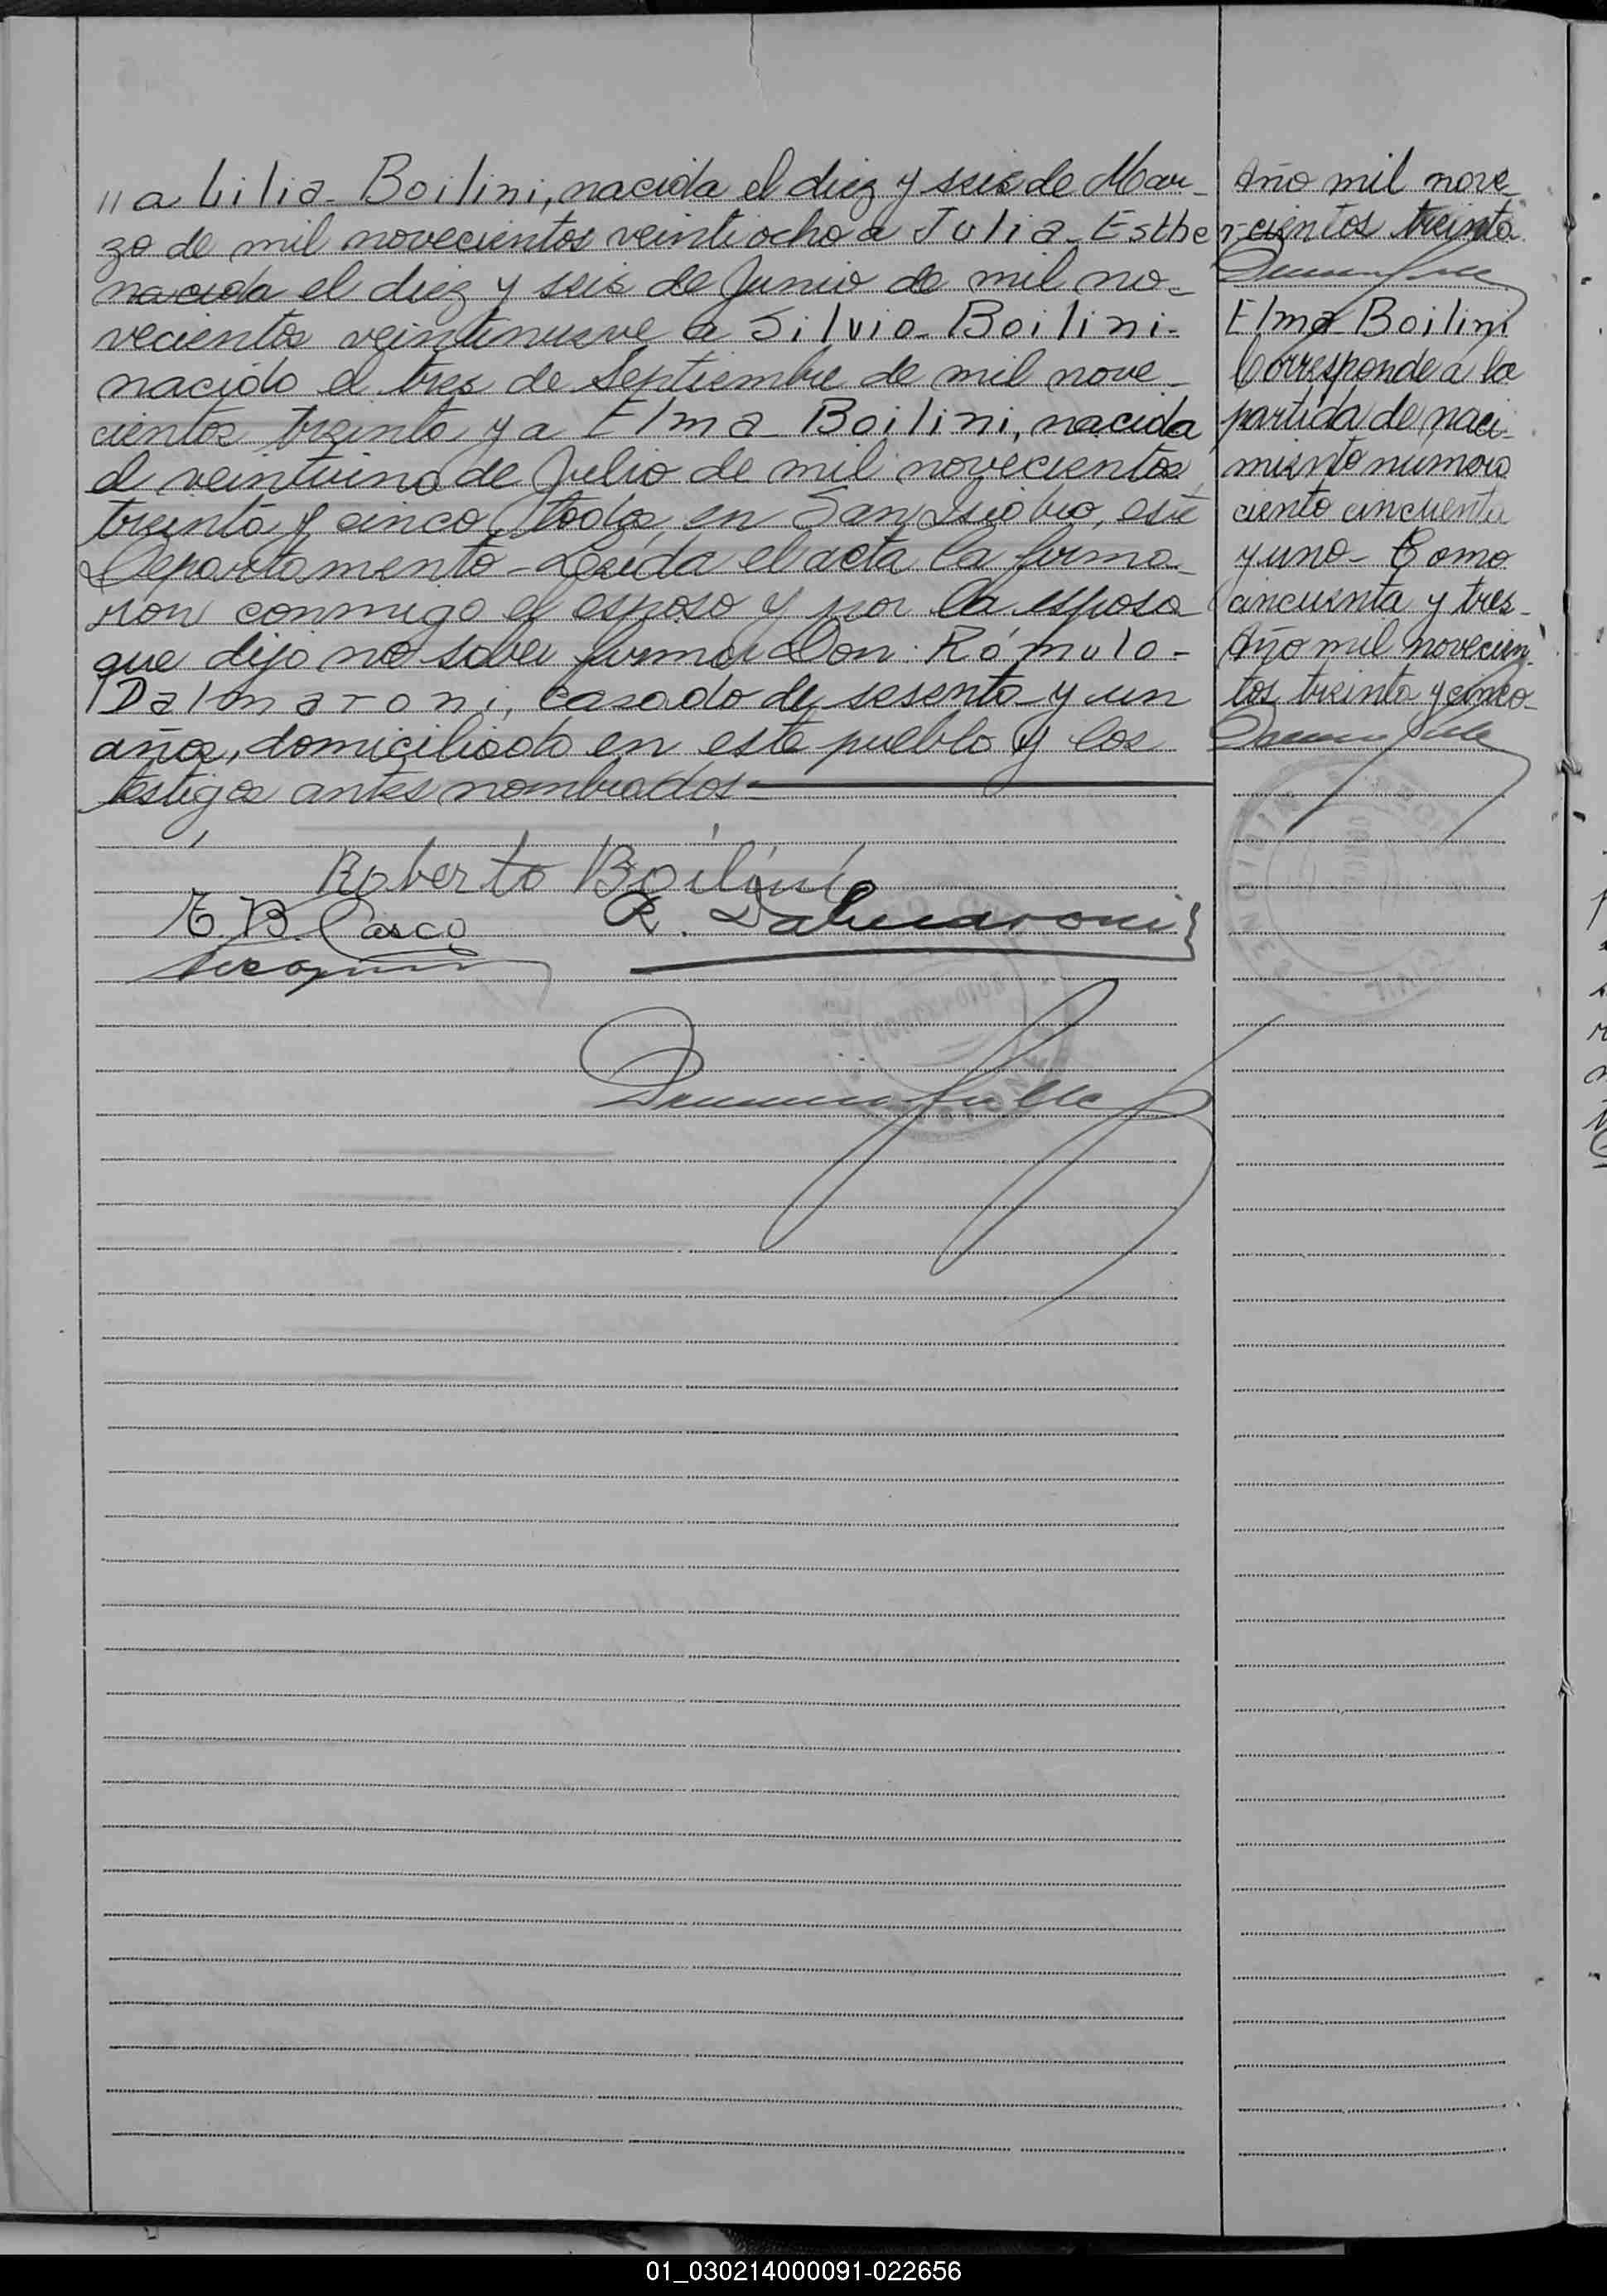 "a Lilia Boilini, nacida el diez y seis de Mar-
zo de mil novecientos veintiocho a Julia Esther
nacida el diez y seis de Junio de mil no-
vecientos veintinueve a Silvio Boilini-
nacido el tres de Septiembre de mil nove-
cientos treinta y a Elma Boilini, nacida
el veintiuno de Julio de mil novecientos
treinta y cinco, todos, en San Isidro, este
Departamento - Leída el acta la firma-
ron conmigo el esposo y por la esposa
que dijo no saber firmar Don: Rómulo-
Dalmaroni, casado de sesenta y un
años, domiciliado en este pueblo y los
testigos antes nombrados-
Roberto Boilini
E. B. Casco
R. Dalmaroni
Año mil nove-
cientos treinta
Elma Boilini
Corresponde á la
partida de naci-
miento numero
ciento cincuenta
y uno- Tomo
cincuenta y tres-
Año mil novecien-
tos treinta y cinco-
01_030214000091-022656